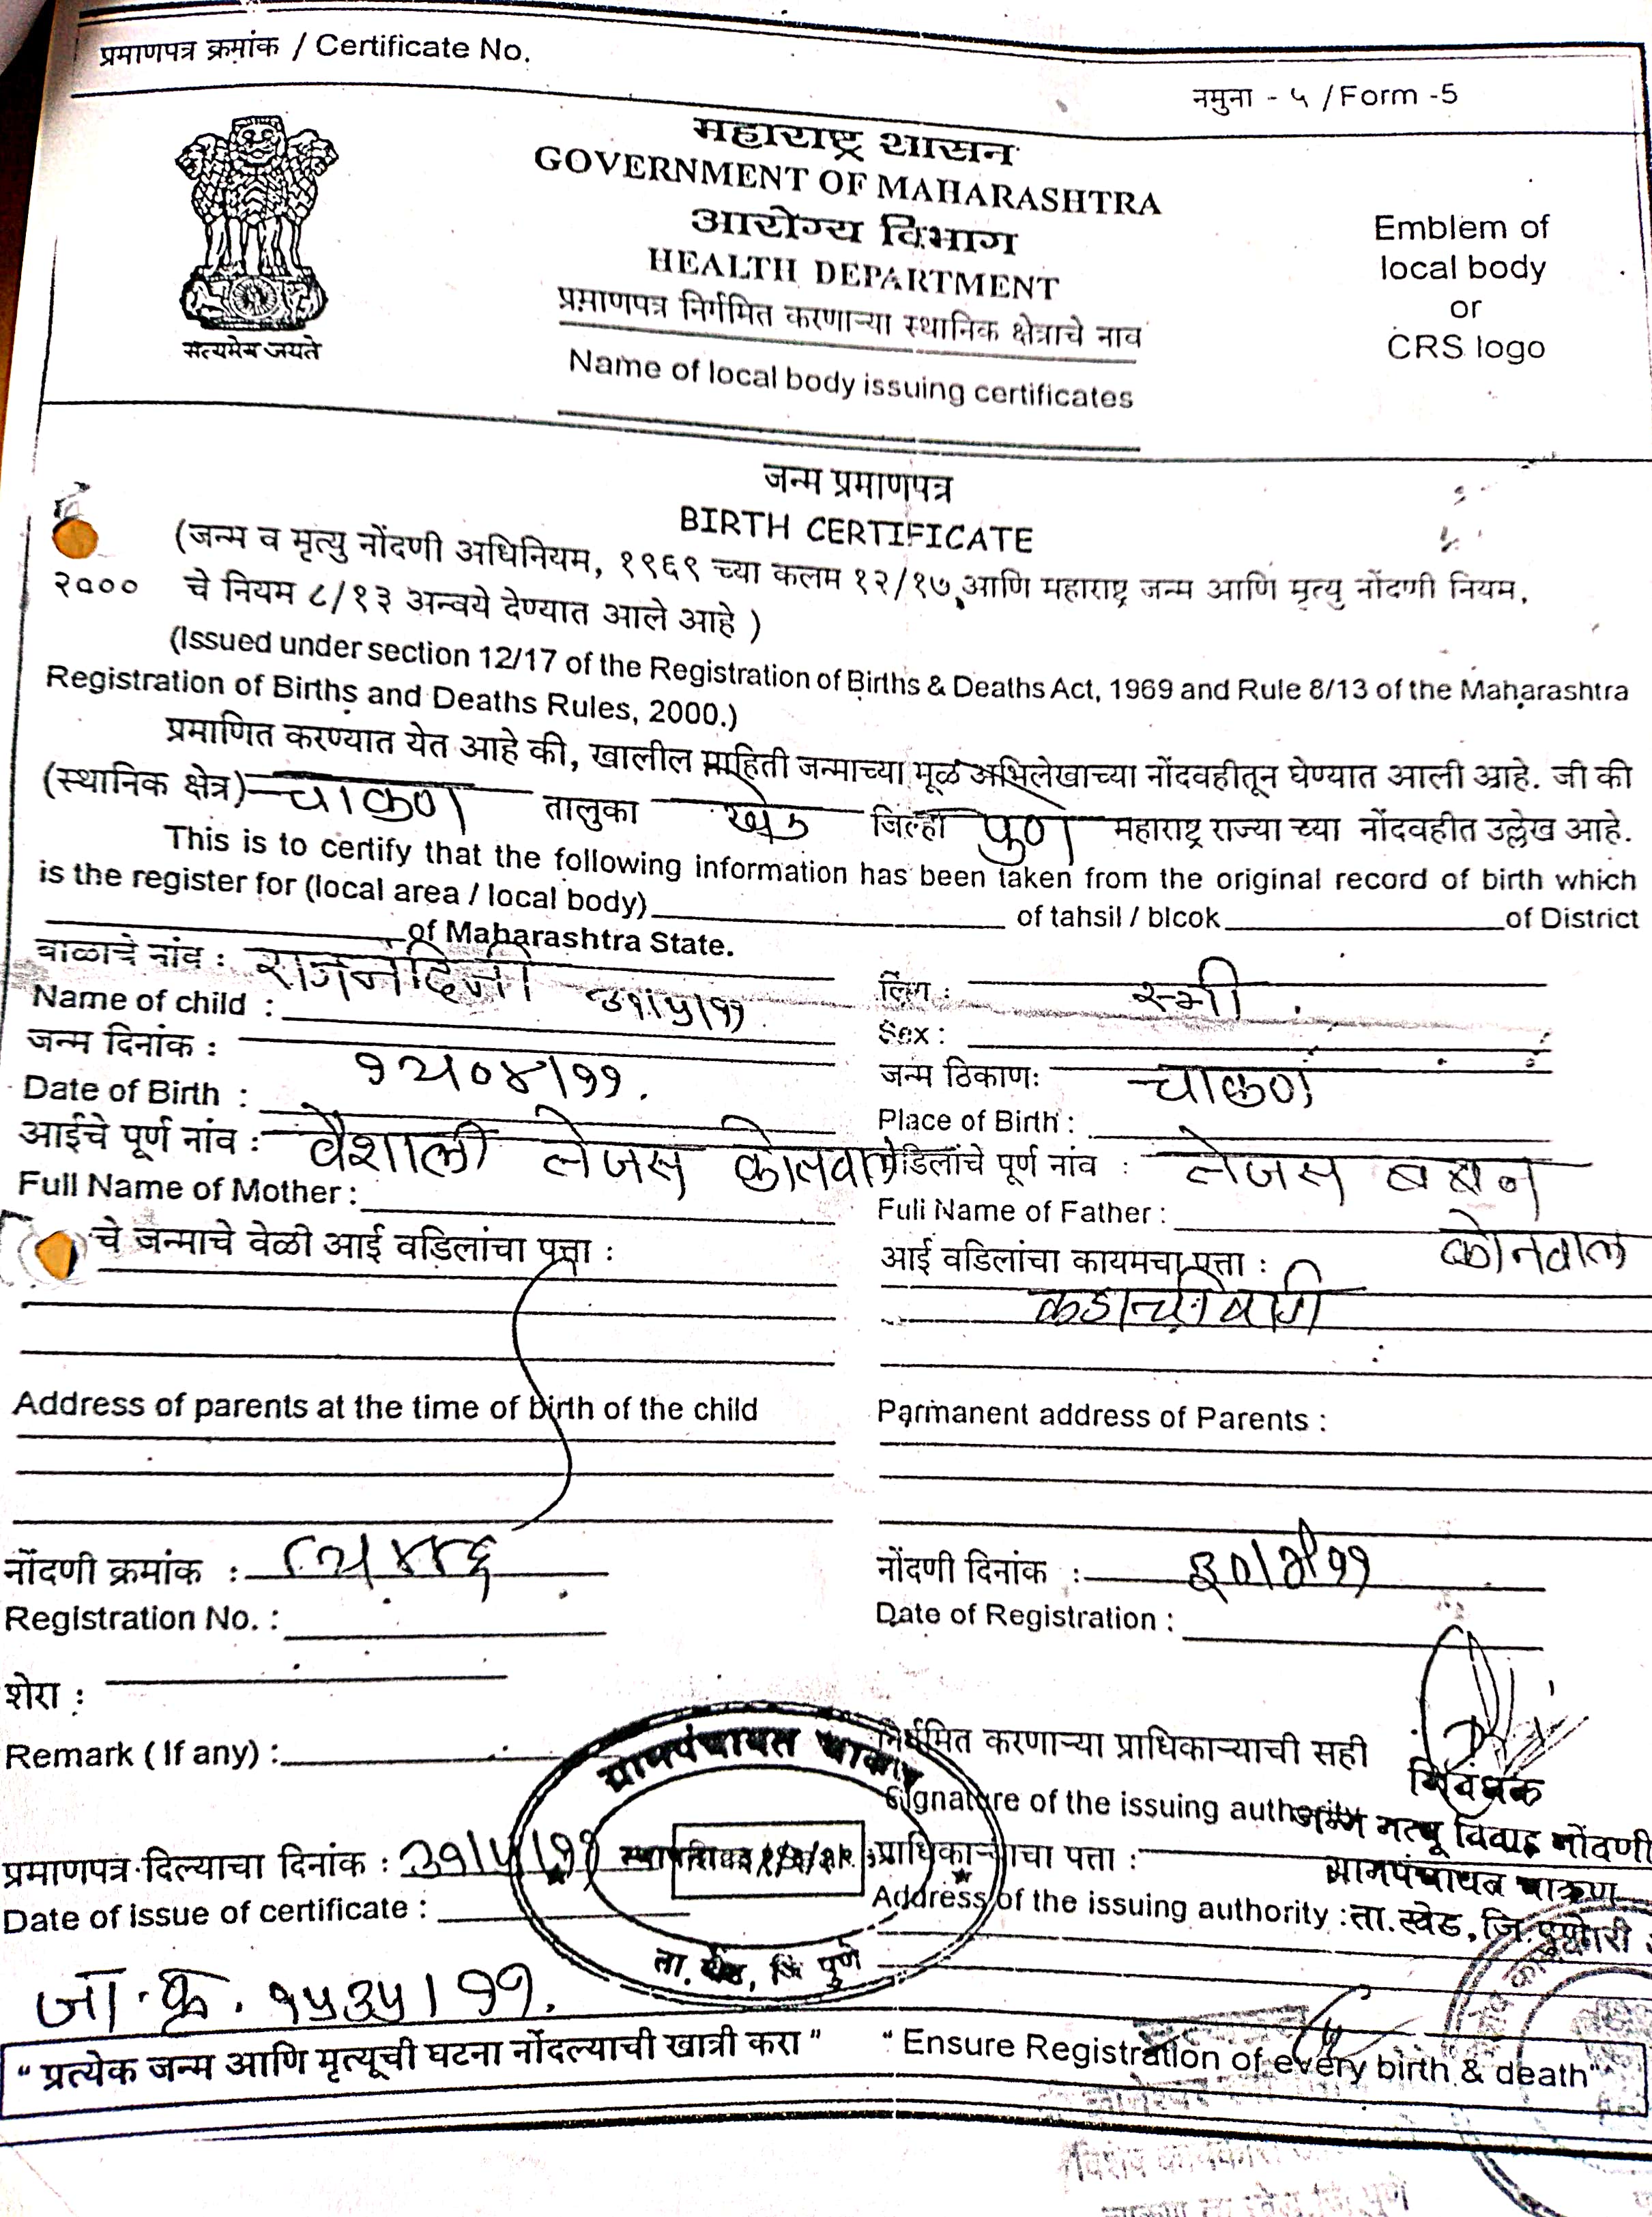 प्रमाणपत्र क्रमांक / Certificate No.
नमुना - ५ / Form -5
महाराष्ट्र शासन
GOVERNMENT OF MAHARASHTRA
आरोग्य विभाग
HEALTH DEPARTMENT
प्रमाणपत्र निर्गमित करणाऱ्या स्थानिक क्षेत्राचे नाव
Name of local body issuing certificates
Emblem of
local body
or
CRS logo
सत्यमेव जयते
जन्म प्रमाणपत्र
BIRTH CERTIFICATE
(जन्म व मृत्यु नोंदणी अधिनियम, १९६९ च्या कलम १२/१७ आणि महाराष्ट्र जन्म आणि मृत्यु नोंदणी नियम,
२००० चे नियम ८/१३ अन्वये देण्यात आले आहे )
(Issued under section 12/17 of the Registration of Births & Deaths Act, 1969 and Rule 8/13 of the Maharashtra
Registration of Births and Deaths Rules, 2000.)
प्रमाणित करण्यात येत आहे की, खालील माहिती जन्माच्या मूळ अभिलेखाच्या नोंदवहीतून घेण्यात आली आहे. जी की
(स्थानिक क्षेत्र) चाकण तालुका खेड जिल्हा पुणे महाराष्ट्र राज्या च्या नोंदवहीत उल्लेख आहे.
This is to certify that the following information has been taken from the original record of birth which
is the register for (local area / local body) of tahsil / blcok of District
of Maharashtra State.
बाळाचे नांव : राजनंदिनी
Name of child :
लिंग : स्त्री
Sex :
जन्म दिनांक : १२/०४/११
Date of Birth :
जन्म ठिकाण: चाकण
Place of Birth :
आईचे पूर्ण नांव : वैशाली तेजस कोतवाल
Full Name of Mother :
वडिलांचे पूर्ण नांव : तेजस बबन
कोतवाल
Full Name of Father :
चे जन्माचे वेळी आई वडिलांचा पत्ता :
आई वडिलांचा कायमचा पत्ता :
कडाचीवाडी
Address of parents at the time of birth of the child
Parmanent address of Parents :
नोंदणी क्रमांक :
Registration No. :
नोंदणी दिनांक : ३०/४/११
Date of Registration :
शेरा :
Remark ( If any) :
निर्गमित करणाऱ्या प्राधिकाऱ्याची सही
Signature of the issuing authority
निबंधक
जन्म मृत्यू विवाह नोंदणी
ग्रामपंचायत चाकण
ता. खेड, जि. पुणे
ग्रामपंचायत चाकण
ता. खेड, जि पुणे
प्रमाणपत्र दिल्याचा दिनांक : ३१/५/११
Date of issue of certificate :
प्राधिकाऱ्याचा पत्ता :
Address of the issuing authority :
जा.क्र. १५३५/११.
“ प्रत्येक जन्म आणि मृत्यूची घटना नोंदल्याची खात्री करा ” “ Ensure Registration of every birth & death”